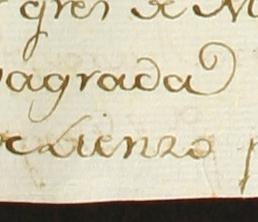 gres de M
agrada
de Lienzo p